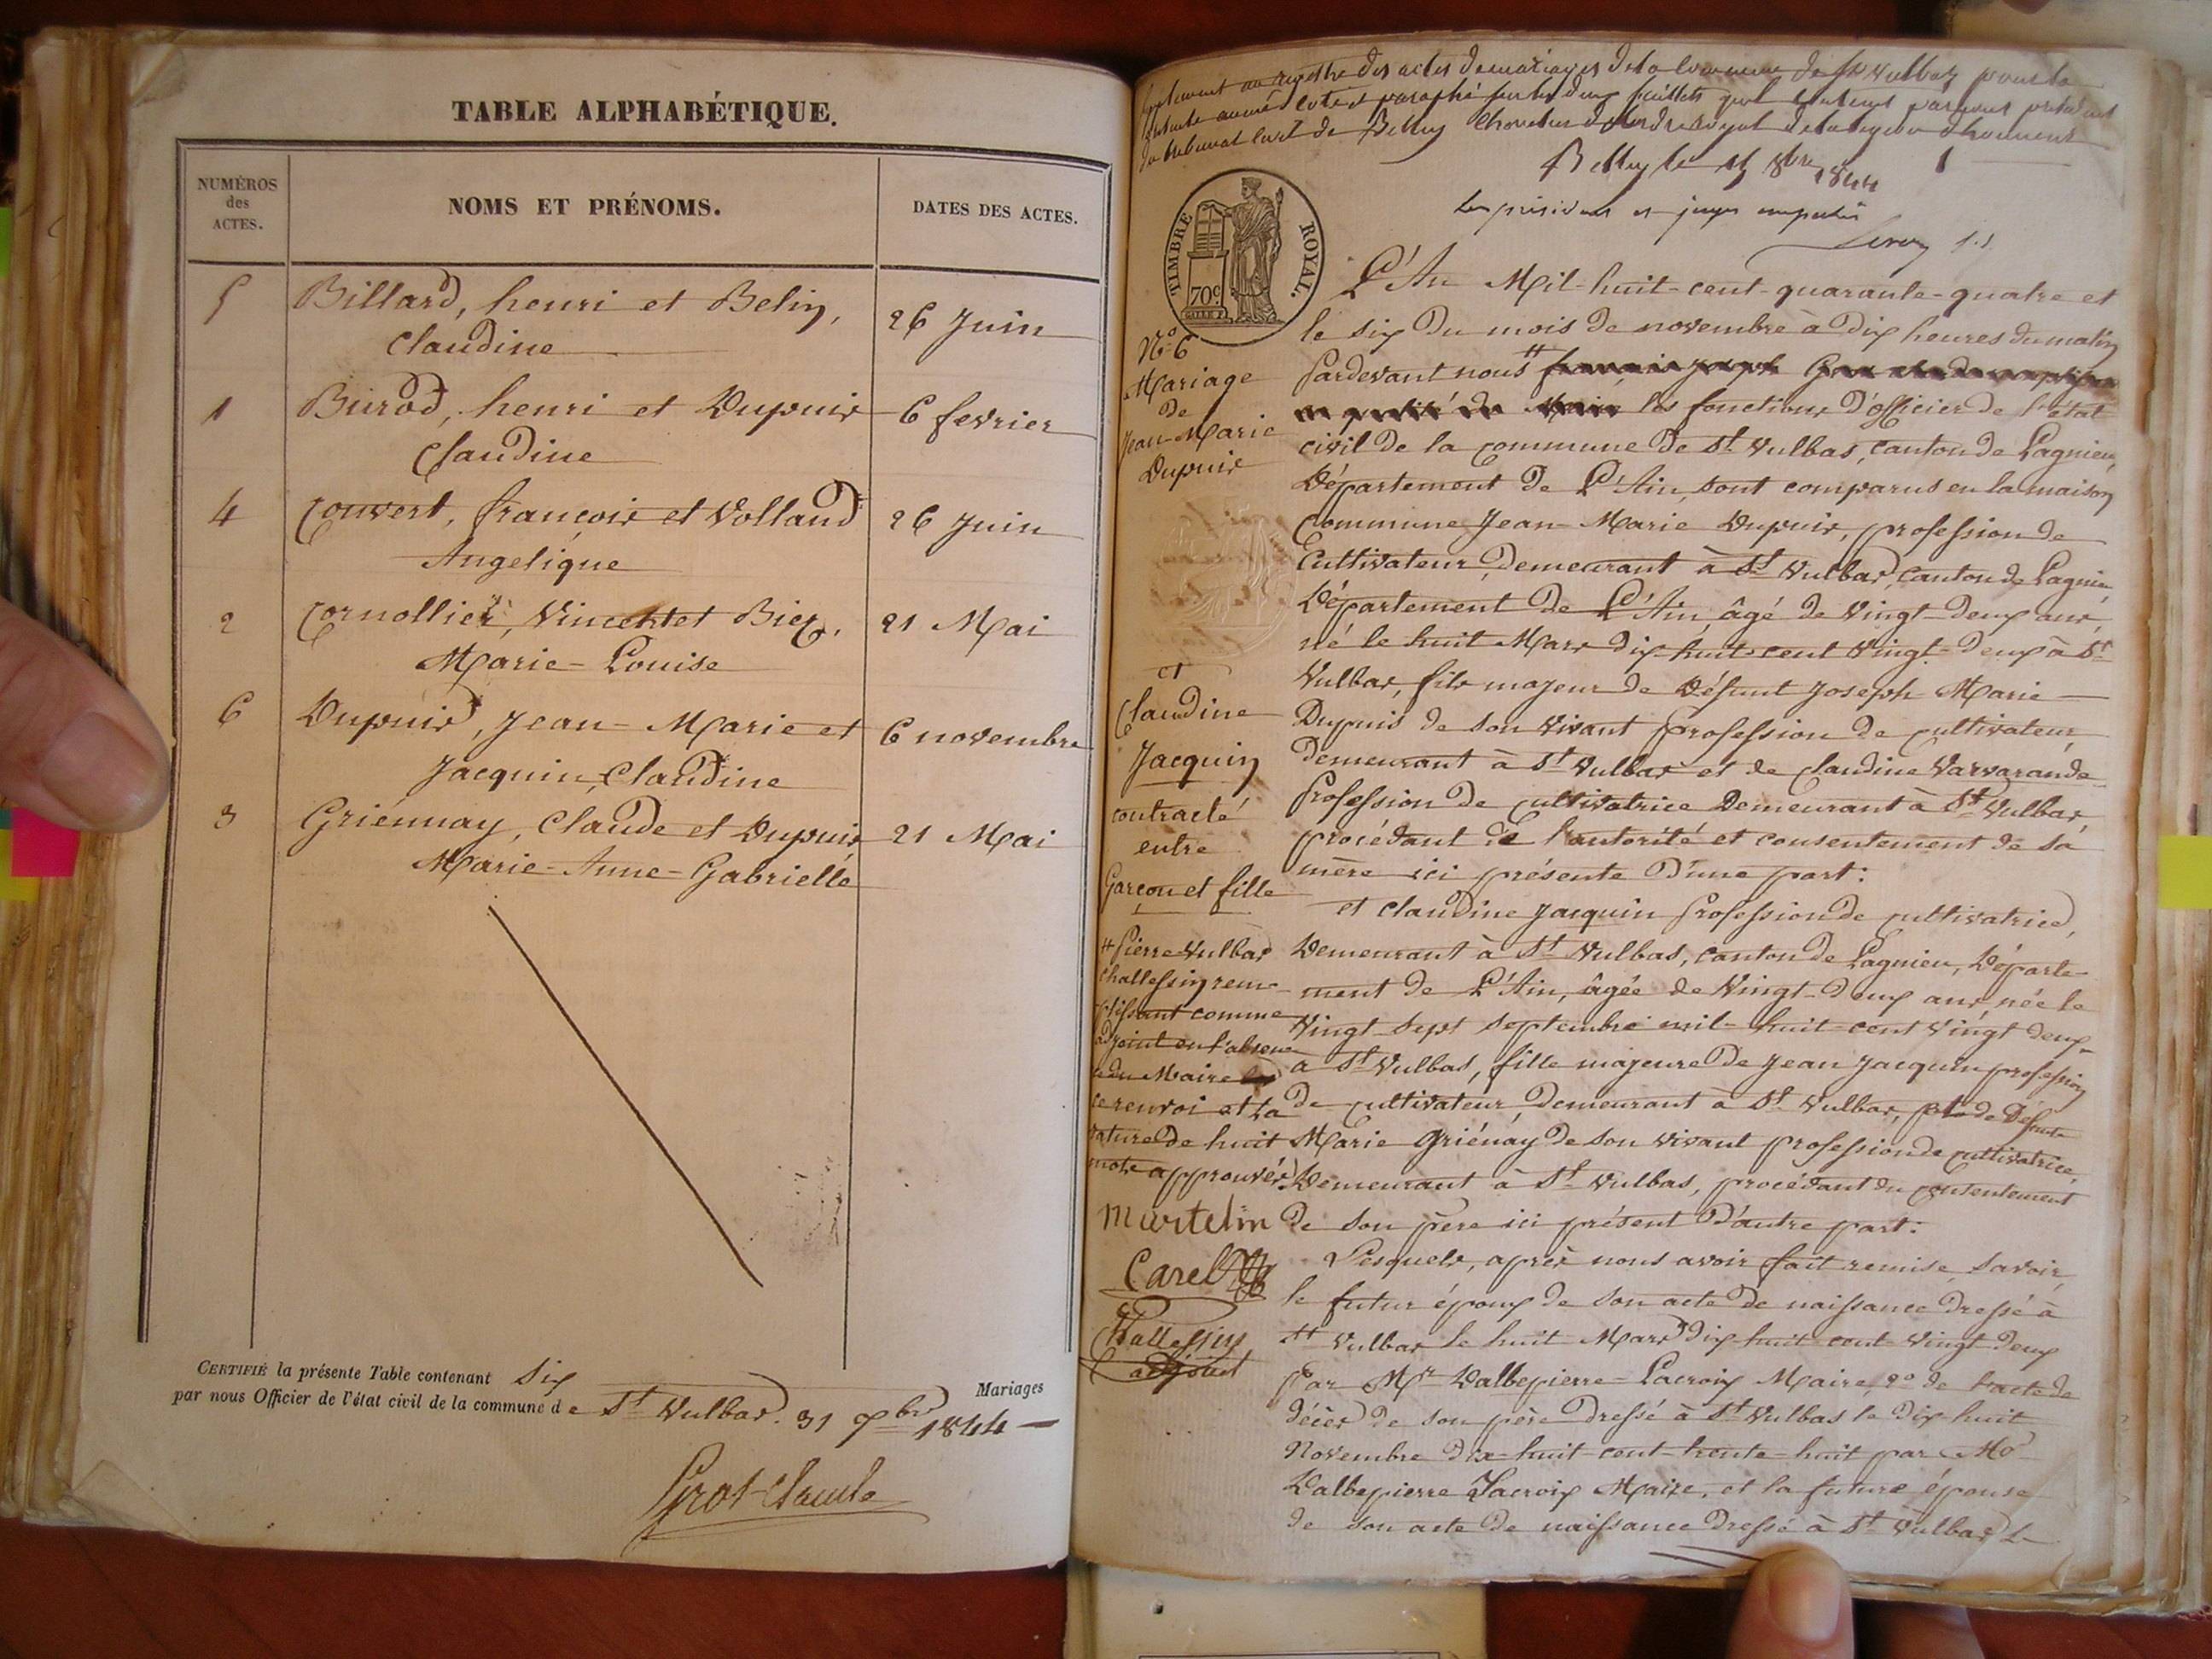 TABLE ALPHABÉTIQUE.
NUMÉROS des ACTES.
NOMS ET PRÉNOMS.
DATES DES ACTES.
5 Billard, henri et Belin, 26 Juin
Claudine
1 Burod, henri et Dupuis 6 fevrier
Claudine
4 Convert, françois et Volland 26 Juin
Angelique
2 Cornollier, Vincent et Biez, 21 Mai
Marie-Louise
6 Dupuis, Jean-Marie et 6 novembre
Jacquin, Claudine
3 Griénnay, Claude et Dupuis 21 Mai
Marie-Anne-Gabrielle
CERTIFIÉ la présente Table contenant Six Mariages
par nous Officier de l'état civil de la commune de St Vulbas. 31 Xbre 1844
registre des actes de mariages de la Commune de St Vulbas pour la
du tribunal Civil de Belley Chevalier de l'ordre royal de la légion d'honneur
Belley le 8bre 1844
1
TIMBRE ROYAL.
70c
No 6
Mariage
de
Jean-Marie
Dupuis
et
Claudine
Jacquin
contracté
entre
Garçon et fille
# Pierre Vulbas
Challessin rem-
plissant comme
adjoint en l'absen-
ce du Maire
ce renvoi et la
rature de huit
mots approuvés
Martelin
Carel
Challessin
adjoint
L'An Mil-huit-cent-quarante-quatre et
le six du mois de novembre à Dix heures du matin
Pardevant nous #
les fonctions d'officier de l'état
civil de la commune de St Vulbas, canton de Lagnieu,
Département de L'Ain, sont comparus en la maison
Commune Jean-Marie Dupuis, profession de
Cultivateur, Demeurant à St Vulbas, canton de Lagnieu,
Département de L'Ain, âgé de Vingt-deux ans,
né le huit Mars dix-huit-cent Vingt-deux à St
Vulbas, fils majeur de Défunt Joseph Marie
Dupuis de son vivant profession de cultivateur,
Demeurant à St Vulbas et de Claudine Varvarande
Profession de cultivatrice Demeurant à St Vulbas,
procédant de l'autorité et consentement de sa
mère ici présente D'une part:
et Claudine Jacquin Profession de cultivatrice,
Demeurant à St Vulbas, canton de Lagnieu, Départe-
ment de L'Ain, âgée de Vingt-deux ans, née le
Vingt-sept septembre mil-huit-cent Vingt deux
à St Vulbas, fille majeure De Jean Jacquin profession
de cultivateur, Demeurant à St Vulbas, et de Défunte
Marie Griénay de son vivant profession de cultivatrice,
Demeurant à St Vulbas, procédant du consentement
de son père ici présent D'autre part:
Lesquels, après nous avoir fait remise, savoir,
le futur époux de son acte de naissance dressé à
St Vulbas le huit Mars dix-huit-cent-vingt-deux
Par Mr Dalbepierre-Lacroix Maire, 2o de l'acte de
décès de son père dressé à St Vulbas le dix-huit
Novembre dix-huit-cent-trente-huit par Mr
Dalbepierre Lacroix Maire, et la future épouse
de son acte de naissance dressé à St Vulbas le